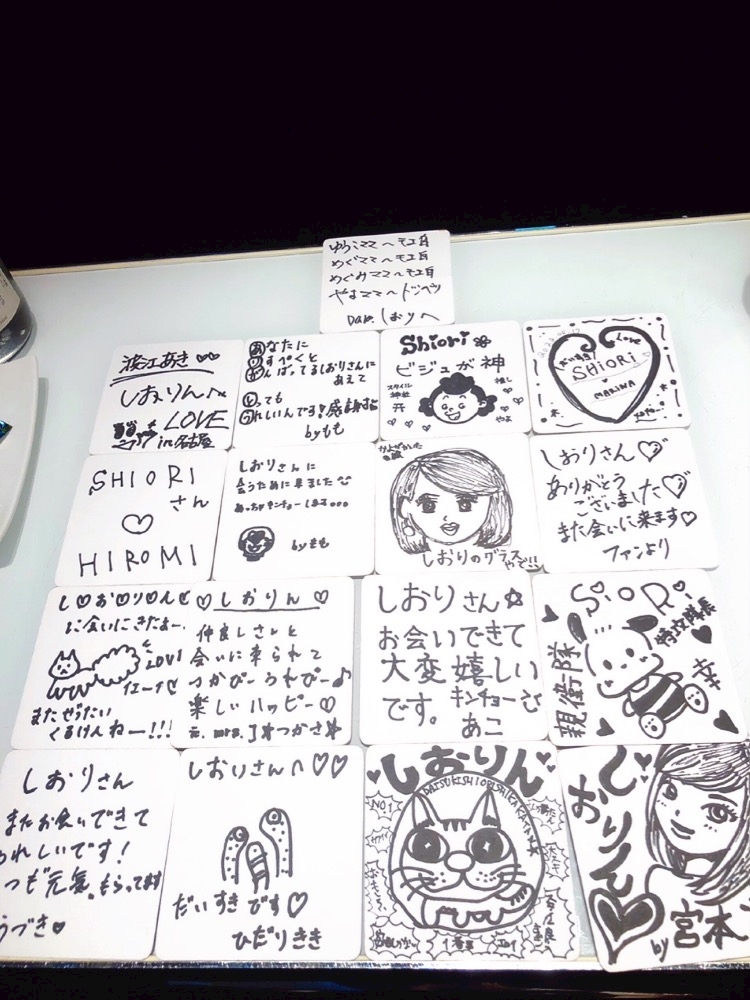 ゆうこママへ モエ耳
めぐママへ モエ耳
めぐみママへ モエ耳
やよママへ
しおりへ
波江あき
しおりんへ
LOVE
in 名古屋
あなたに
りすぺくと
がんばってるしおりさんに
あえて
とっても
うれしいんです!感謝
byもも
Shiori
ビジュが神
スタイル
神社
推し
やよ
だいすき
Love
SHIORi
MARINA
SHIORI
さん
HIROMI
しおりさんに
会うために来ました
めっちゃキンチョーします。。。
byもも
しおりのグラス
やで!!
しおりさん♡
ありがとう
ございました♡
また会いに来ます♡
ファンより
し♡お♡り♡ん♡
に会いにきたよー。
LOVE
イエーイ
また ぜったい
くるけんねー!!!
♡しおりん♡
仲良しさんと
会いに来られて
つかぴー うれぴー♪
楽しい ハッピー♡
しおりさん☆
お会いできて
大変嬉しい
です。
キンチョー
あこ
SiORi
特攻隊長
親衛隊
幸
しおりさん
またお会いできて
うれしいです!
いつも元気もらってます
うづき♥
しおりさんへ♡♡
だいすきです♡
ひだりきき
しおりん
DAISUKISHIORISHIKAKATAN
NO1
しおりん
by 宮本